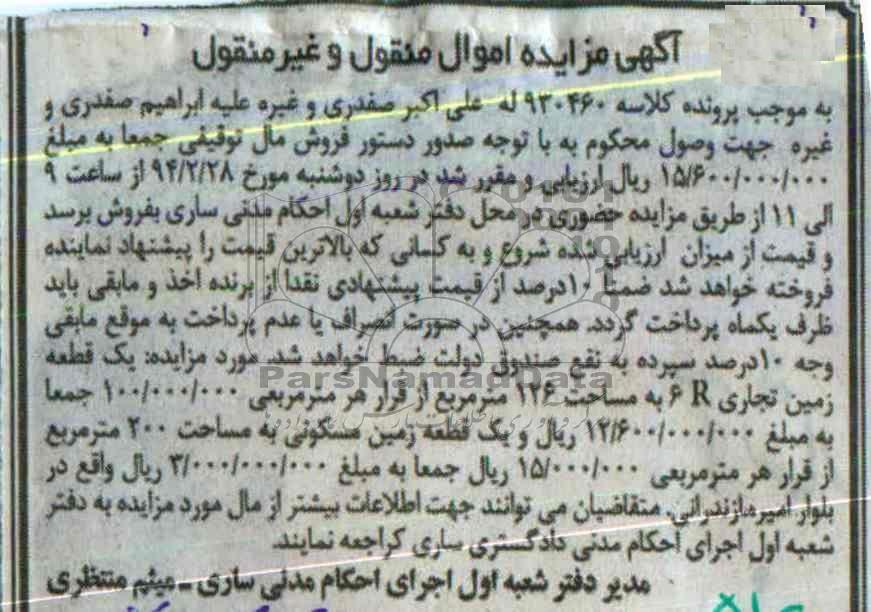 آگهی مزایده اموال منقول و غیر منقول
به موجب پرونده کلاسه ۹۳۰۴۶۰ له علی اکبر صفدری و غیره علیه ابراهیم صفدری و
غیره جهت وصول محکوم به با توجه صدور دستور فروش مال توقیفی جمعا به مبلغ
۱۵/۶۰۰/۰۰۰/۰۰۰ ریال ارزیابی و مقرر شد در روز دوشنبه مورخ ۹۴/۲/۲۸ از ساعت ۹
الی ۱۱ از طریق مزایده حضوری در محل دفتر شعبه اول احکام مدنی ساری بفروش برسد
و قیمت از میزان ارزیابی شده شروع و به کسانی که بالاترین قیمت را پیشنهاد نماینده
فروخته خواهد شد ضمنا ۱۰درصد از قیمت پیشنهادی نقدا از برنده اخذ و مابقی باید
ظرف یکماه پرداخت گردد. همچنین در صورت انصراف یا عدم پرداخت به موقع مابقی
وجه ۱۰درصد سپرده به نفع صندوق دولت ضبط خواهد شد. مورد مزایده: یک قطعه
ParsNamadData
زمین تجاری R ۶ به مساحت ۱۲۶ مترمربع از قرار هر مترمربعی ۱۰۰/۰۰۰/۰۰۰ جمعا
به مبلغ ۱۲/۶۰۰/۰۰۰/۰۰۰ ریال و یک قطعه زمین مسکونی به مساحت ۲۰۰ مترمربع
از قرار هر مترمربعی ۱۵/۰۰۰/۰۰۰ ریال جمعا به مبلغ ۳/۰۰۰/۰۰۰/۰۰۰ ریال واقع در
بلوار امیرمازندرانی. متقاضیان می توانند جهت اطلاعات بیشتر از مال مورد مزایده به دفتر
شعبه اول اجرای احکام مدنی دادگستری ساری کراجعه نمایند.
مدیر دفتر شعبه اول اجرای احکام مدنی ساری - میثم منتظری